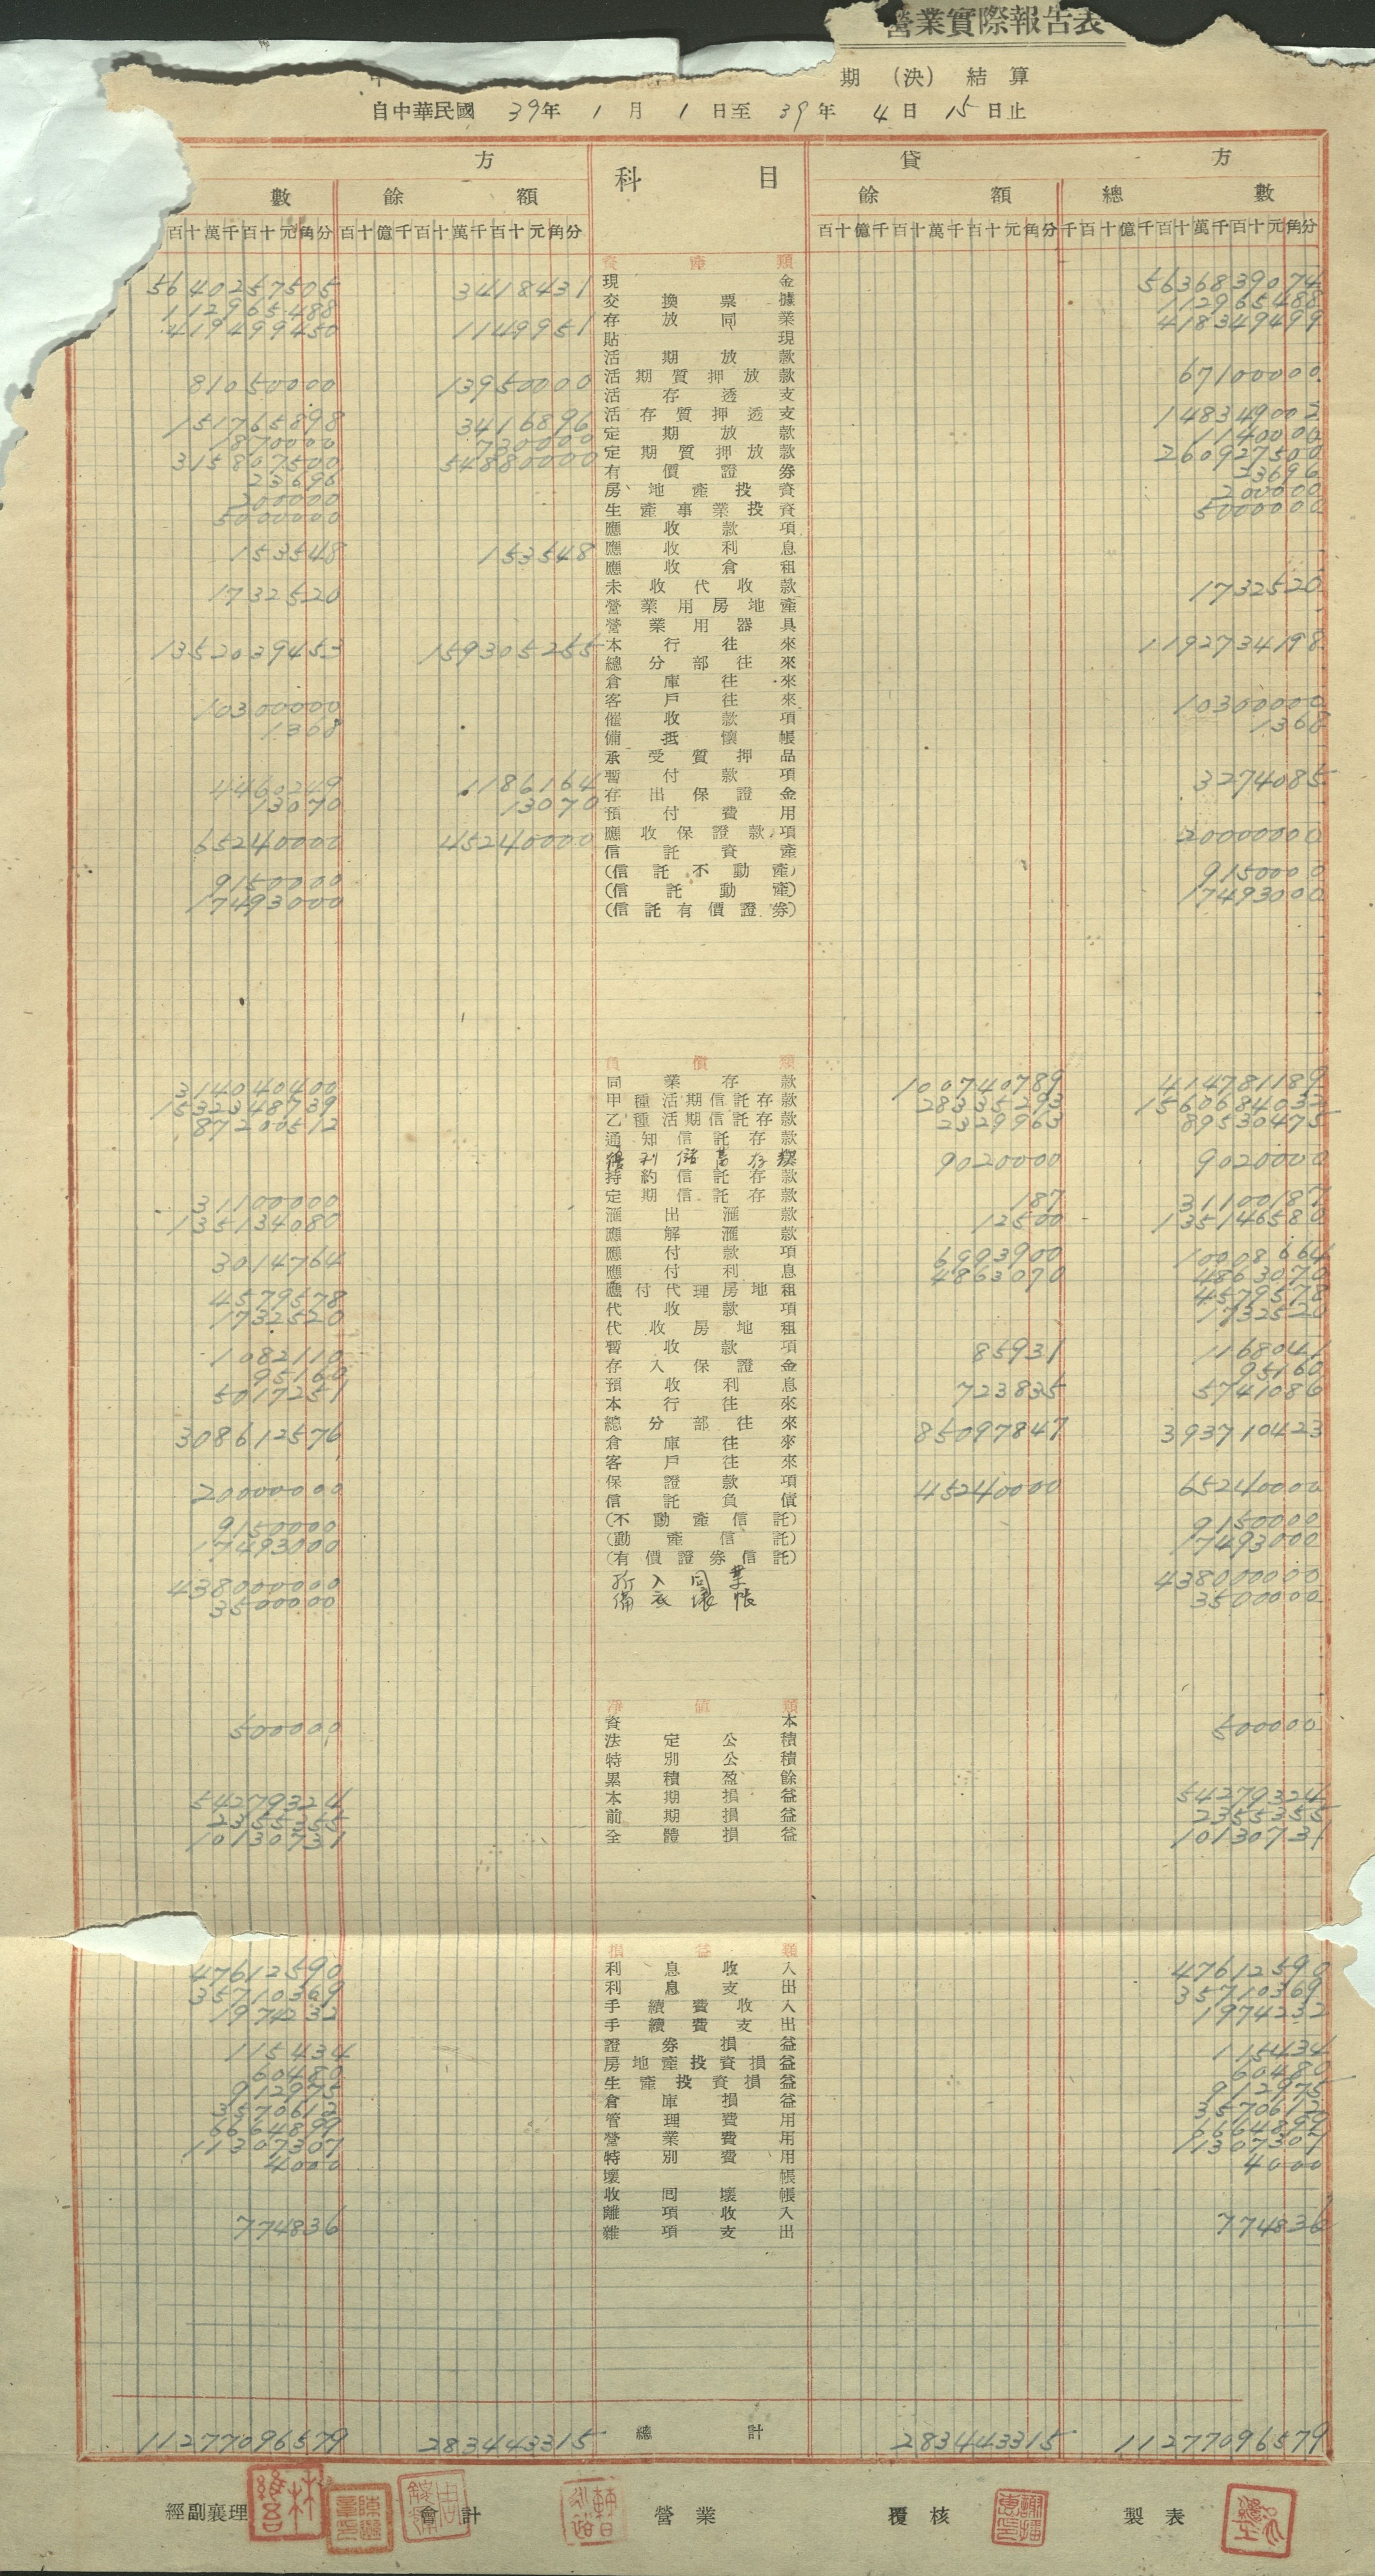 營業實際報告表
期 (決) 結 算
自中華民國 39年 1 月 1 日至 39 年 4 日 15 日止
方 科 目 貸 方
數 餘 額 餘 額 總 數
百十萬千百十元角分 百十億千百十萬千百十元角分 百十億千百十萬千百十元角分 千百十億千百十萬千百十元角分
資產類
5640257505 3418431 現金 5636839074
112965488 交換票據 112965488
419499450 1149951 存放同業 418349499
貼現
活期放款
81050000 13950000 活期質押放款 67100000
活存透支
151765898 3416896 活存質押透支 148349002
1870000 730000 定期放款 1140000
315807500 54880000 定期質押放款 260927500
23696 有價證券 23696
200000 房地產投資 200000
5000000 生產事業投資 5000000
應收款項
153548 153548 應收利息
應收倉租
1732520 未收代收款 1732520
營業用房地產
營業用器具
1352039453 159305255 本行往來 1192734198
總分部往來
倉庫往來
10300000 客戶往來 10300000
1368 催收款項 1368
備抵懷帳
承受質押品
4460249 1186164 暫付款項 3274085
13070 13070 存出保證金
預付費用
65240000 45240000 應收保證款項 20000000
信託資產
9150000 (信託不動產) 9150000
17493000 (信託動產) 17493000
(信託有價證券)
負債類
314040400 同業存款 100740789 414781189
1532348739 甲種活期信託存款 28335293 1560684032
87200512 乙種活期信託存款 2329963 89530475
通知信託存款
利儲蓄存款 9020000 9020000
持約信託存款
31100000 定期信託存款 187 31100187
135134080 滙出滙款 12500 135146580
應解滙款
3014764 應付款項 6993900 10008664
應付利息 4863070 4863070
4579578 應付代理房地租 4579578
1732520 代收款項 1732520
代收房地租
1082110 暫收款項 85931 1168041
95160 存入保證金 95160
5017251 預收利息 723835 5741086
本行往來
308612576 總分部往來 85097847 393710423
倉庫往來
客戶往來
20000000 保證款項 45240000 65240000
信託負債
9150000 (不動產信託) 9150000
17493000 (動產信託) 17493000
(有價證券信託)
438000000 拆入同業 438000000
3500000 備底壞帳 3500000
淨值類
500000 資本 500000
法定公積
特別公積
累積盈餘
54279324 本期損益 54279324
2355355 前期損益 2355355
10130731 全體損益 10130731
損益類
47612590 利息收入 47612590
35710369 利息支出 35710369
1974232 手續費收入 1974232
手續費支出
115434 證券損益 115434
60480 房地產投資損益 60480
912975 生產投資損益 912975
3570612 倉庫損益 3570612
6664899 管理費用 6664899
11307307 營業費用 11307307
4000 特別費用 4000
壞帳
收回壞帳
774836 雜項收入 774836
雜項支出
11277096579 283443315 總計 283443315 11277096579
經副襄理 會計 營業 覆核 製表